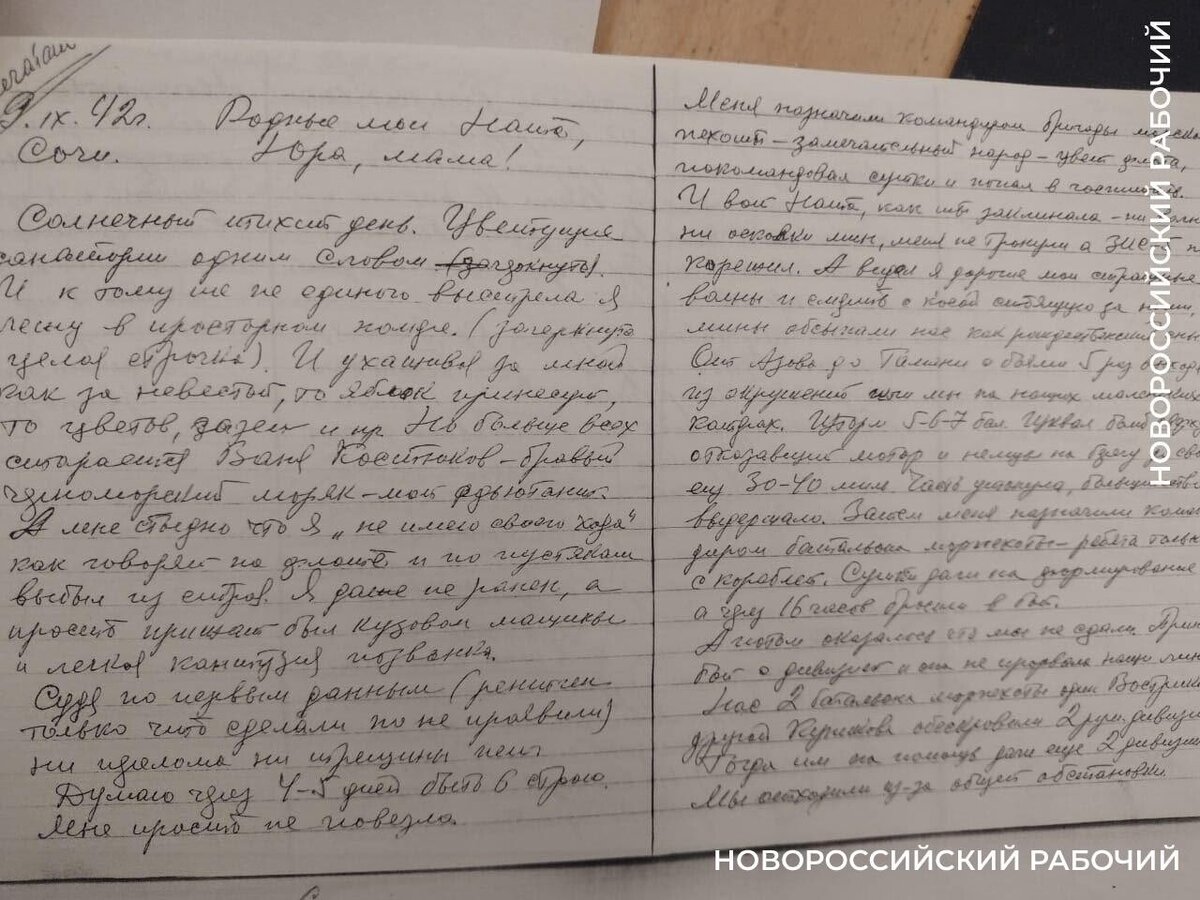 9.IX.42г. Родные мои Ната,
Сочи. Юра, мама!
Солнечный тихий день. Цветущие
санатории одним словом (зачеркнуто).
И к тому же не единого выстрела я
лежу в просторном (зачеркнута
целая строчка). И ухаживая за мной
как за невестой, то яблок принесут,
то цветов, и пр. Но больше всех
старается Ваня Костюков - бравый
черноморский моряк - мой адъютант.
А мне стыдно что я "не имею своего хода"
как говорят на флоте и по пустякам
выбыл из строя. Я даже не ранен, а
просто прищат был кузовом машины
и легкая кантузия позвонка.
Судя по первым данным (рентген
только что сделали но не проявили)
ни перелома ни трещины нет
Думаю через 4-5 дней быть в строю.
Мне просто не повезло.
Меня назначили командиром бригады
пехоты - замечательный народ - цвет флота,
покомандовал сутки и попал в госпиталь.
И вот Ната, как ты заклинала - ни
ни осколки мин, меня не тронули а ЗИС5
А видел я дорогие мои страшные
волны и смерть с косой
мины обсыпали нас как рождественский
От Азова до Тамани с боями 5 раз
из окружений шли мы на наших маленьких
Шторм 5-6-7 бал. Шквал
отказавший мотор и немцы на берегу
еще 30-40 миль Часть утонула,
выдержало. Затем меня назначили
диром батальона морпехоты - ребята
с кораблей. Сутки дали на формирование
а через 16 часов бросили в бой.
А потом оказалось что мы не сдали.
бой с дивизией и она не прорвала наши
Нас 2 батальона морпехоты один
другой Куникова обескровили 2 рум. дивизии
Тогда им на помощь дали еще 2 дивизии
Мы отходили из-за общей обстановки
НОВОРОССИЙСКИЙ РАБОЧИЙ
НОВОРОССИЙСКИЙ РАБОЧИЙ